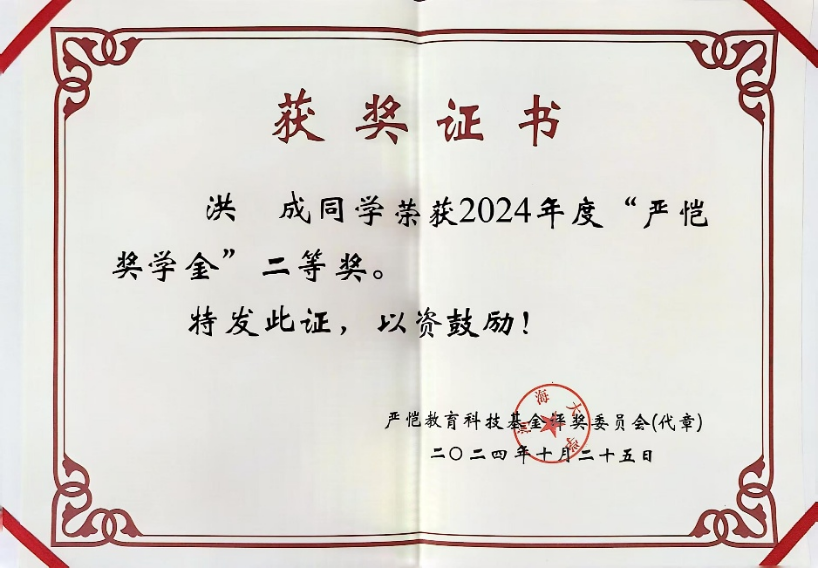 获奖证书
洪 成同学荣获2024年度“严恺
奖学金”二等奖。
特发此证，以资鼓励！
严恺教育科技基金评奖委员会(代章)
二〇二四年十月二十五日
河海大学